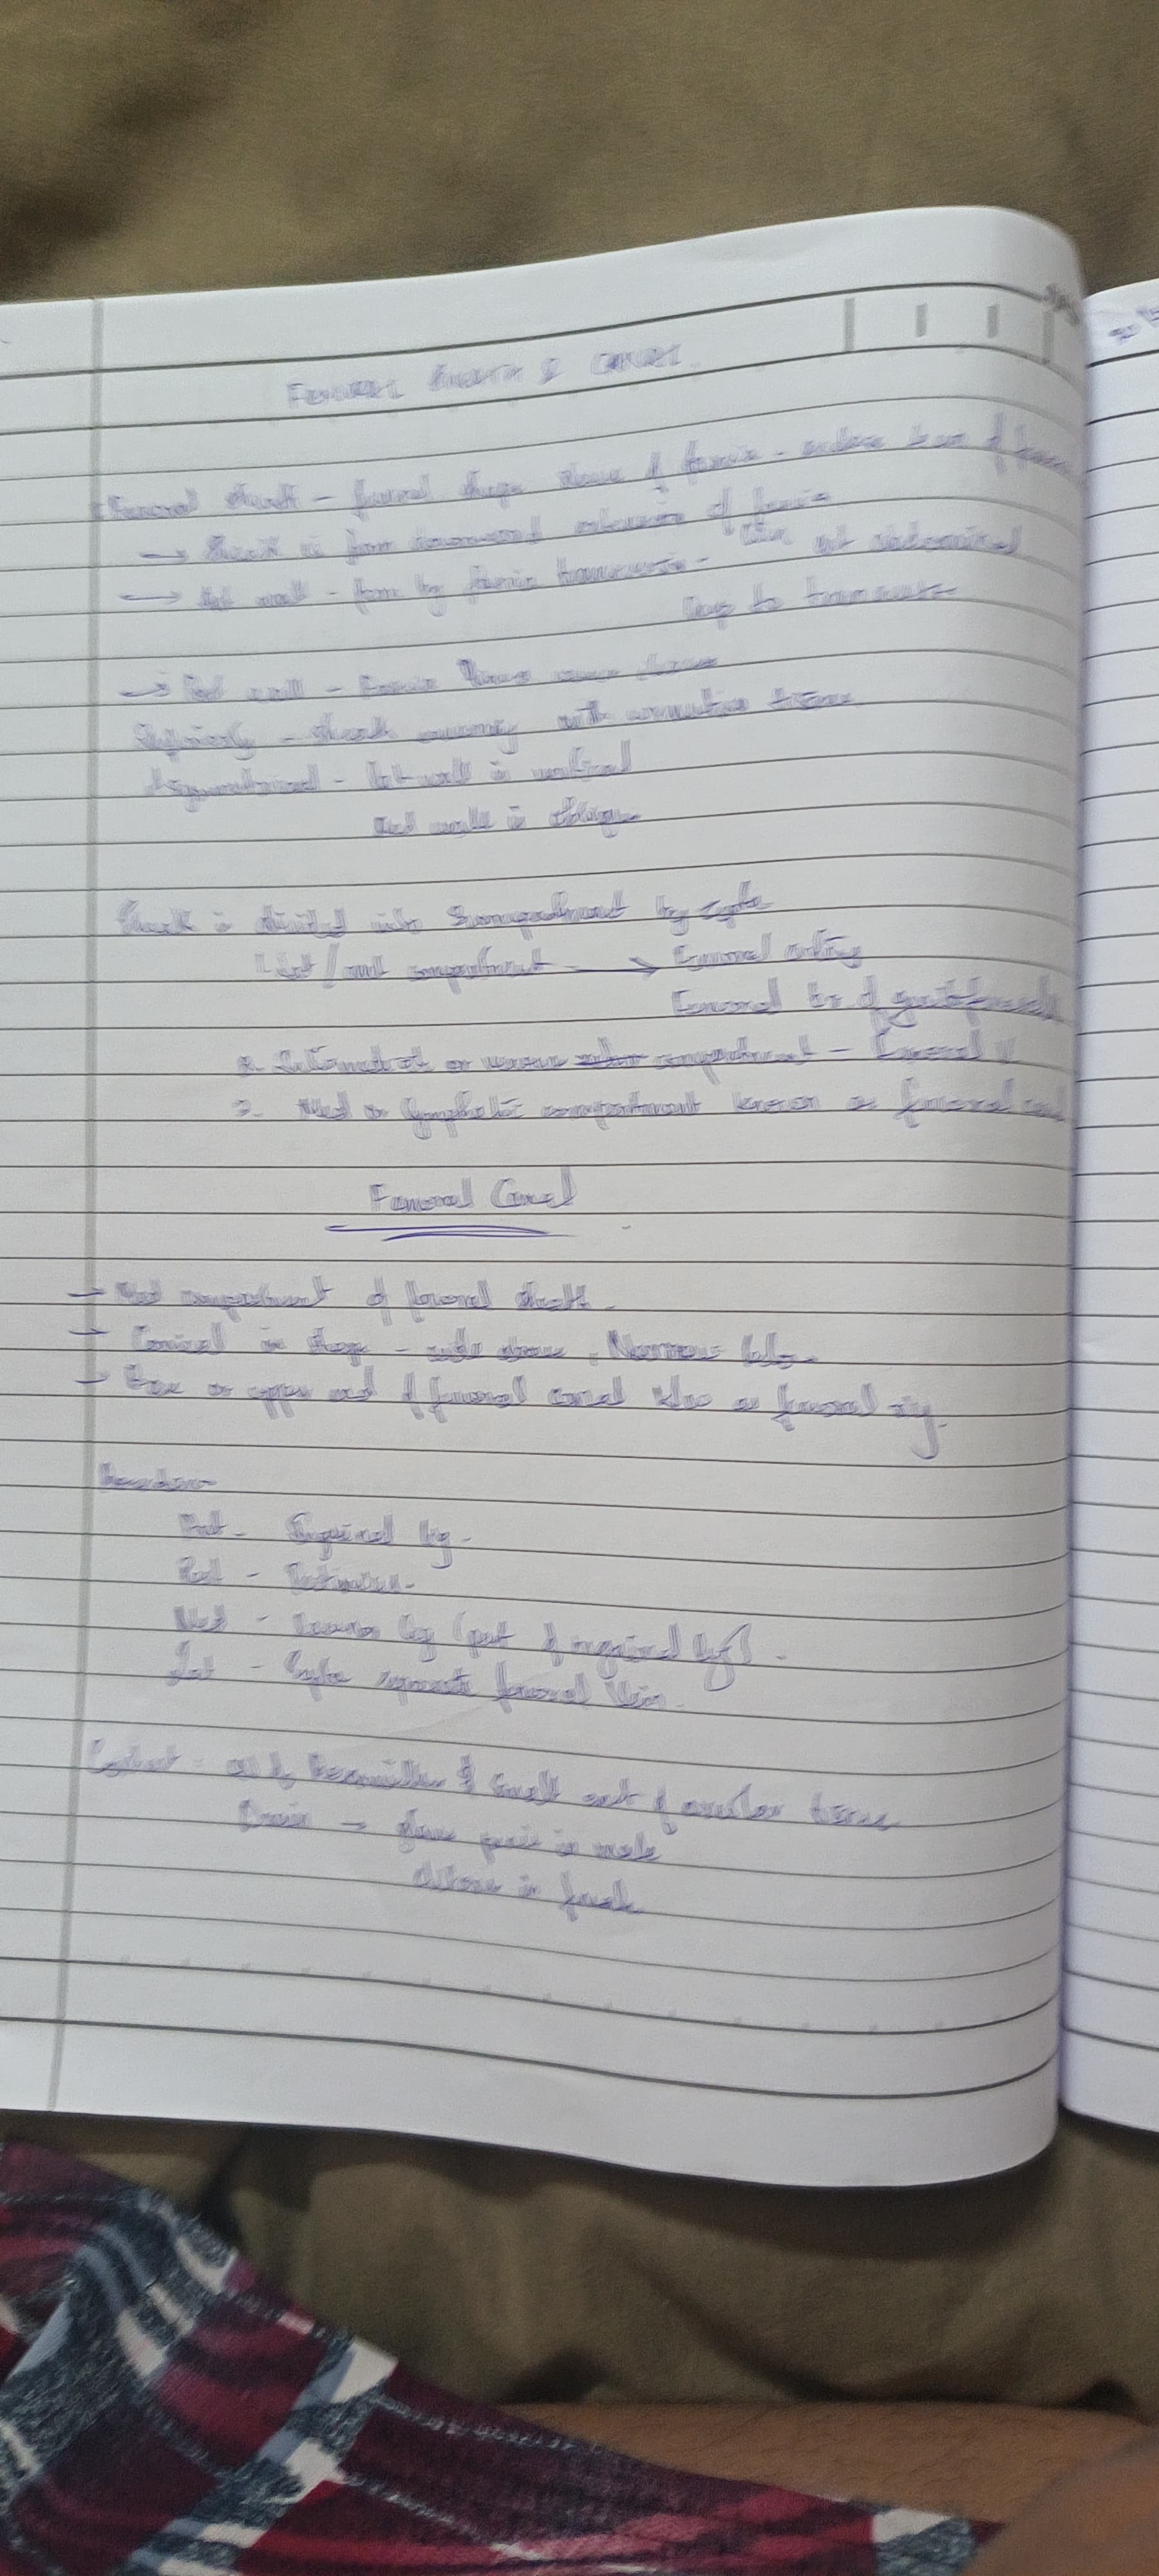 Femoral Sheath & Canal
Femoral sheath - funnel shape sleeve of fascia - enclose
→ Sheath is form downward extension of fascia
→ Ant wall - form by fascia transversis - ant abdominal
Deep to transverse
→ Post wall - Fascia iliaca
Inferiorly - sheath merge with connective tissue
Asymmetrical - lat wall is vertical
Med wall is oblique
Sheath is divided into 3 compartment by septa
1. lat / compartment → Femoral artery
Femoral br of genitofemoral
2. Intermediate or venous compartment - Femoral v
3. Med or lymphatic compartment known as femoral canal
Femoral Canal
→ Med compartment of femoral sheath.
→ Conical in shape - wide above, Narrow below
→ Base or upper end of femoral canal as femoral ring.
Boundary
Ant - Inguinal lig.
Post - Pectineus.
Med - Lacunar lig (part of inguinal lig).
Lat - Septa separate femoral vein.
Content - of Rosenmuller & Small amt of areolar tissue
Drain → glans penis in male
clitoris in female